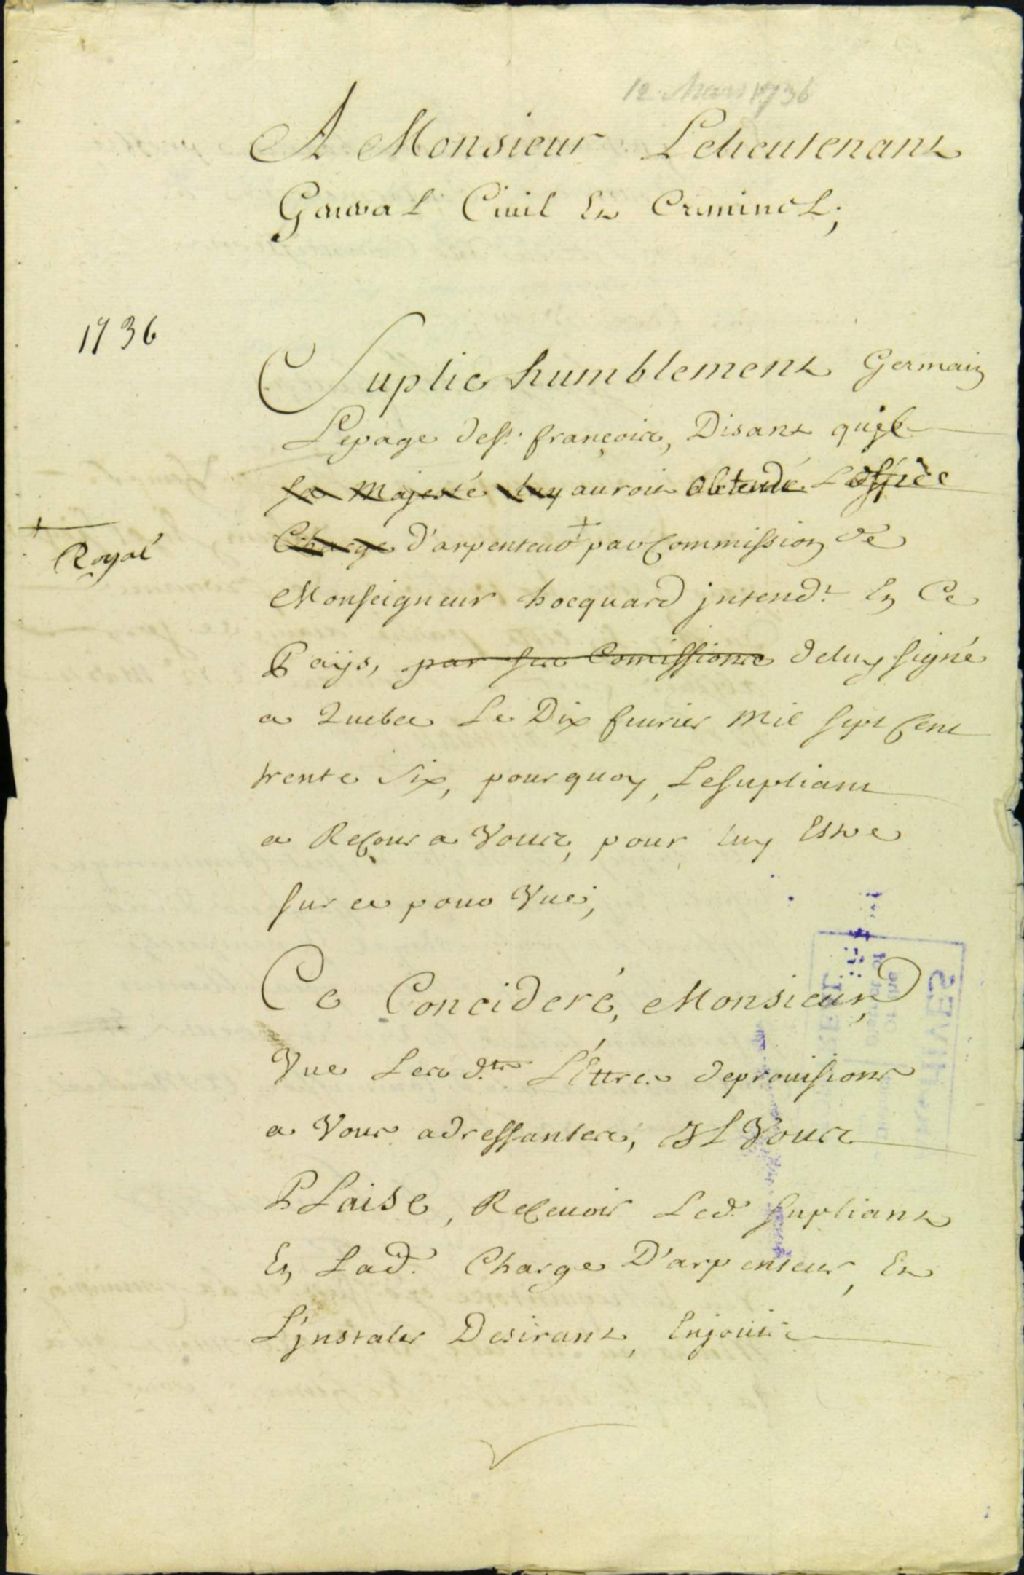 12 Mars 1736
A Monsieur Lelieutenant
General Ciuil Et Criminel;
1736
Suplie humblement Germain
Lepage dest. françois, Disant quil
sa Majesté luy auroit obtenu L'office
Charge d'arpenteur + par Commission de
+
Royal
Monseigneur hocquard jntend.t En Ce
Païs, par sa Comissions de luy signé
a Quebec Le Dix feurier Mil sept Cent
trente Six, pourquoy, Lesupliant
a Recour a Vous, pour luy Estre
sur ce pouruüe,
Ce Concideré, Monsieur,
Vue Les d.tes L'Ettres deprouisions
a Vous adressantes, Il Vous
Plaise, Receuoir Led. supliant
En Lad. Charge D'arpenteur, Et
L'jnstaler Desirant, Enjouir
ARCHIVES